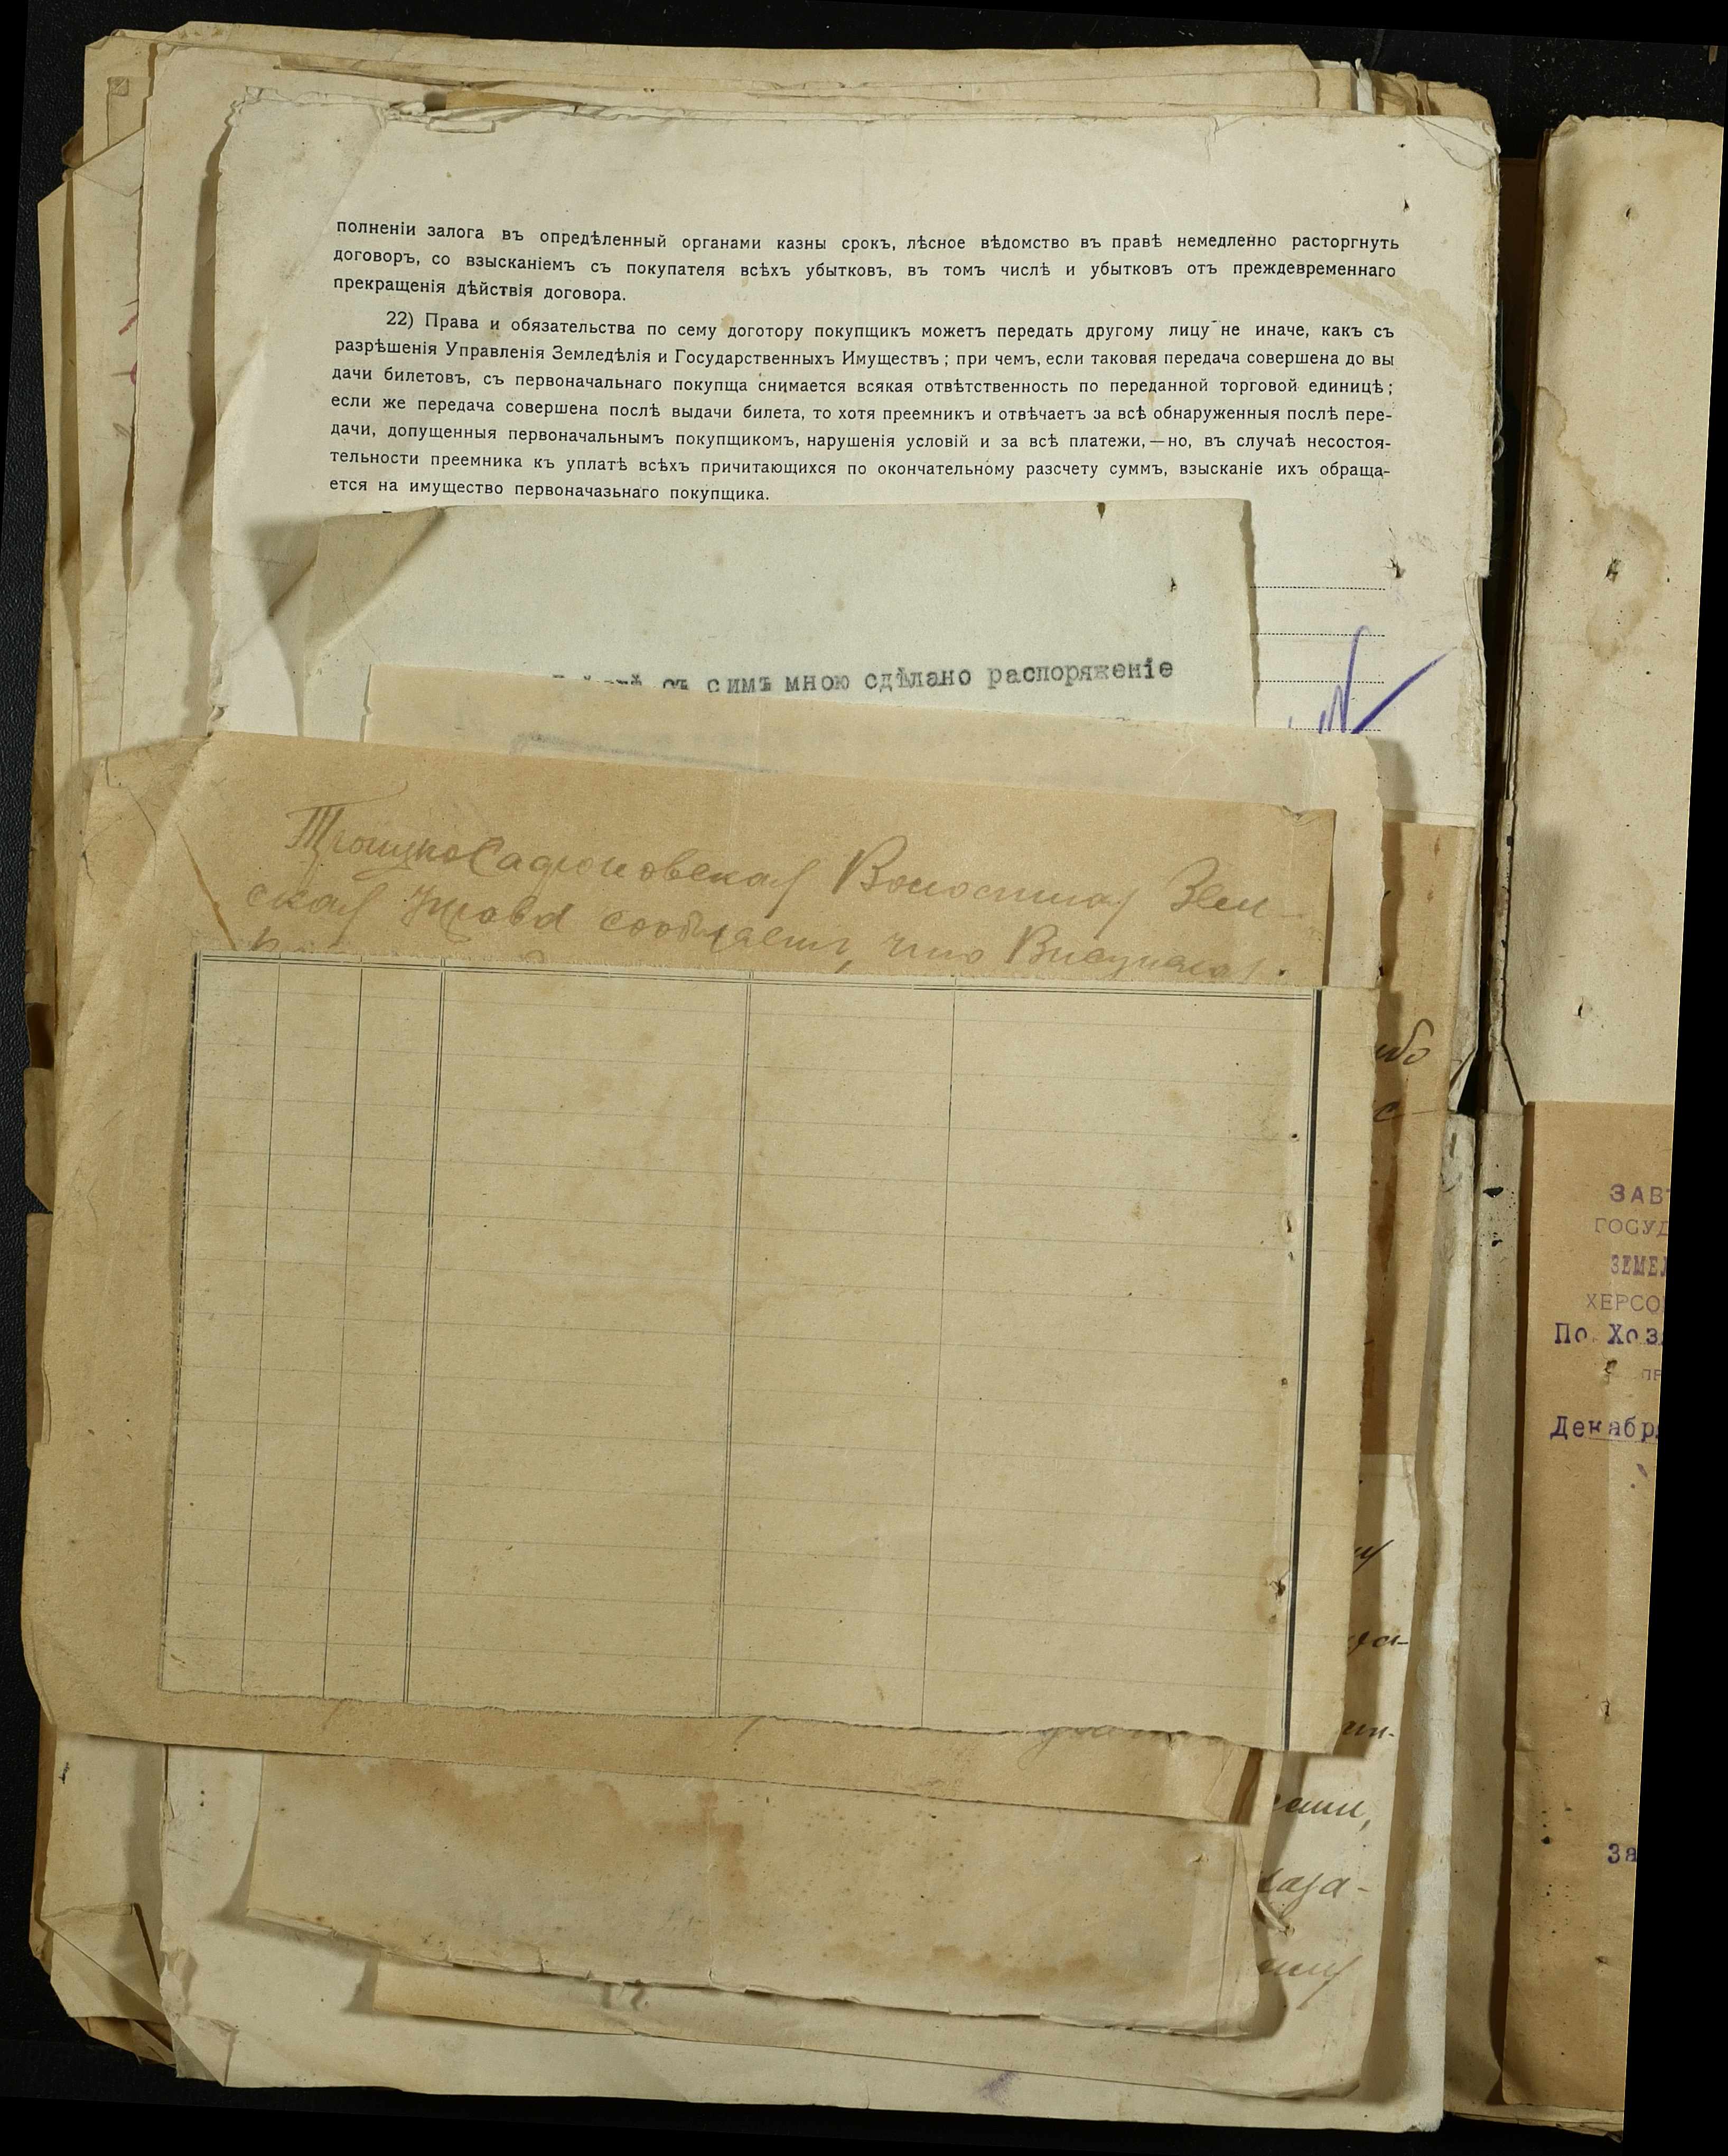 полненіи залога въ опредѣленный органами казны срокъ, лѣсное вѣдомство въ правѣ немедленно расторгнуть
договоръ, со взысканіемъ съ покупателя всѣхъ убытковъ, въ томъ числѣ и убытковъ отъ преждевременнаго
прекращенія дѣйствія договора.
22) Права и обязательства по сему доготору покупщикъ можетъ передать другому лицу не иначе, какъ съ
разрѣшенія Управленія Земледѣлія и Государственныхъ Имуществъ; при чемъ, если таковая передача совершена до вы
дачи билетовъ, съ первоначальнаго покупща снимается всякая отвѣтственность по переданной торговой единицѣ;
если же передача совершена послѣ выдачи билета, то хотя преемникъ и отвѣчаетъ за всѣ обнаруженныя послѣ пере-
дачи, допущенныя первоначальнымъ покупщикомъ, нарушенія условій и за всѣ платежи,—но, въ случаѣ несостоя-
тельности преемника къ уплатѣ всѣхъ причитающихся по окончательному разсчету суммъ, взысканіе ихъ обраща-
ется на имущество первоначазьнаго покупщика.
съ симъ мною сдѣлано распоряженіе
Волостная Зем-
ская Управа сообщает, что
ибо
с
ЗАВ
ГОСУД
ЗЕМЕЛ
ХЕРСО
По Хоз
Декабр
За